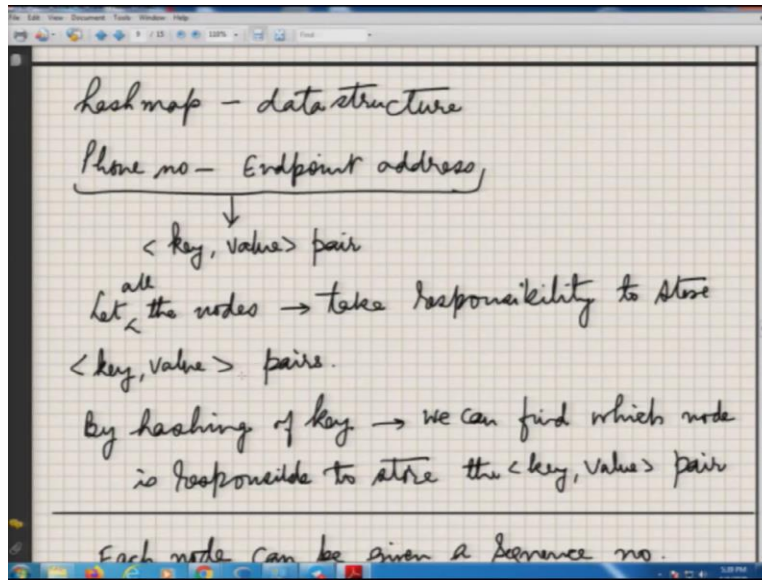 File Edit View Document Tools Window Help
9 / 15 110% Find
hashmap - datastructure
Phone no - Endpoint address,
<key, value> pair
all
Let the nodes → take responsibility to store
<key, value> pairs.
By hashing of key → we can find which node
is responsible to store the <key, value> pair
Each node can be given a Sequence no.
5:39 PM